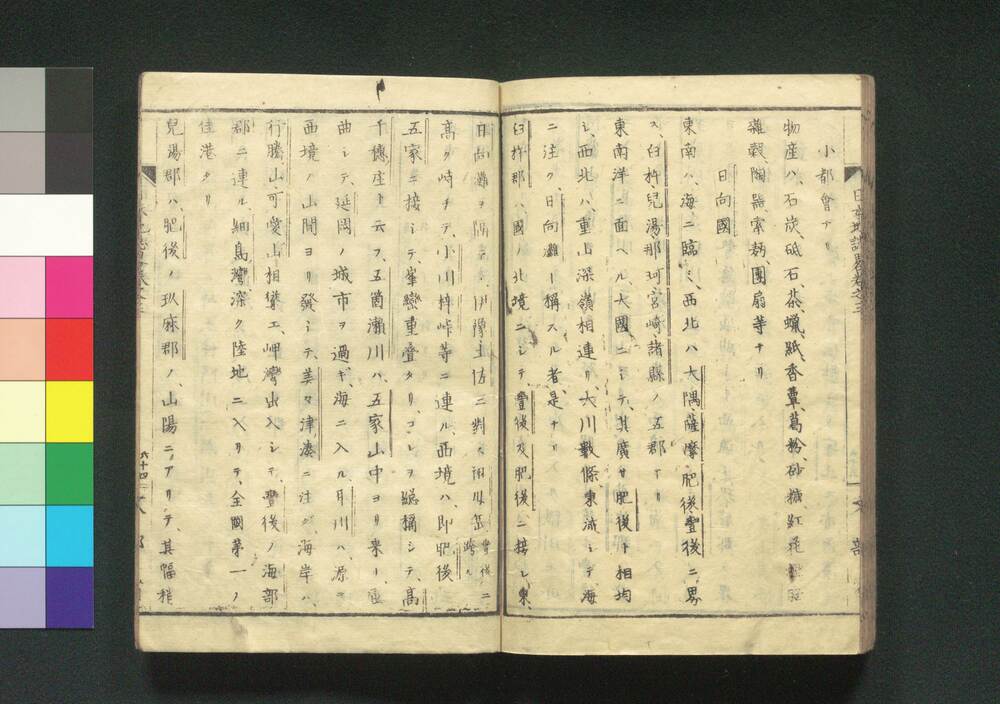 小都會ナリ
物産ハ、石炭、砥石、茶、蝋、紙、香蕈、葛粉、砂糖、紅花
雜穀、陶器、索麪、團扇等ナリ
日向國
東南ハ、海ニ臨ミ、西北ハ、大隅、薩摩、肥後、豐後ニ界
ス、臼杵、兒湯、那珂、宮崎、諸縣ノ五郡ナリ
東南洋ニ面ヘル、大國ニシテ、其廣サ肥後ト相均
シ、西北ハ、重山深嶺相連リ、大川數條東流シテ海
ニ注ク、日向灘ト稱スル者是ナリ
臼杵郡ハ、國ノ北境ニシテ、豐後及肥後ニ接シ、東
日向灘ヲ隔テ、伊豫土佐ニ對ス、祖母岳豐後ニ跨ル
高ク峙チテ、小川梓峠等ニ連ル、西境ハ、即肥後
五家ニ接シテ、峯巒重疊タリ、コレヲ總稱シテ、高
千穗庄ト云フ、五箇瀬川ハ、五家山中ヨリ來ー、
曲シテ、延岡ノ城市ヲ過ギ海ニ入ル、耳川ハ、源ヲ
西境ノ山間ヨリ發シテ、美々津湊ニ注グ、海岸ハ、
行騰山、可愛山相聳エ、岬灣出入シテ、豐後ノ海部
郡ニ連ル、細島灣深ク陸地ニ入リテ、全國第一ノ
佳港タリ
兒湯郡ハ、肥後ノ玖麻郡ノ、山陽ニアリテ、其幅稍
六十四